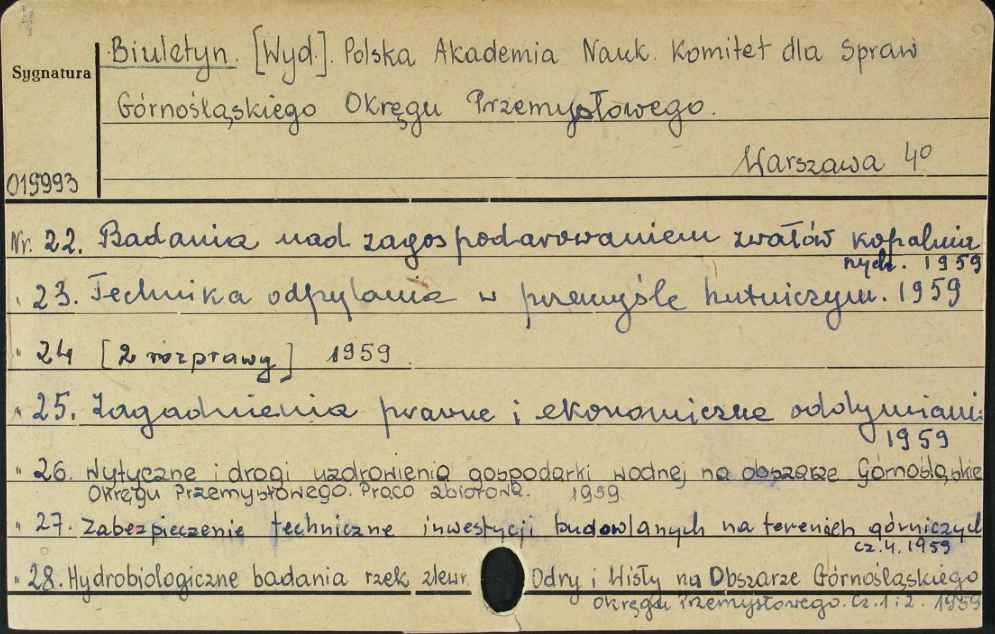 Biuletyn. [Wyd.]. Polska Akademia Nauk. Komitet dla Spraw
Sygnatura
Górnośląskiego Okręgu Przemysłowego.
Warszawa 4o
019993
Nr. 22. Badania nad zagospodarowaniem zwałów kopalnia
nych. 1959
" 23. Technika odpylania w przemyśle hutniczym. 1959
" 24 [2 rozprawy] 1959
" 25. Zagadnienia prawne i ekonomiczne oddymiani
1959
" 26. Wytyczne i drogi uzdrowienia gospodarki wodnej na obszarze Górnośląskie
Okręgu Przemysłowego. Praca zbiorowa. 1959
" 27. Zabezpieczenie techniczne inwestycji budowlanych na terenich górniczych
cz. 4. 1959
" 28. Hydrobiologiczne badania rzek zlewr. Odry i Wisły na Obszarze Górnośląskiego
Okręgu Przemysłowego. Cz. 1 i 2. 1959